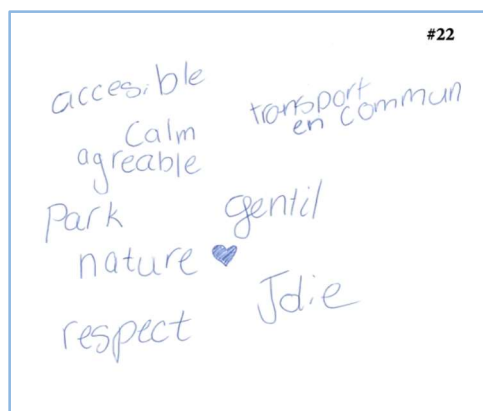 #22
accesible
transport
en commun
Calm
agreable
Park
gentil
nature ♥
Jdie
respect